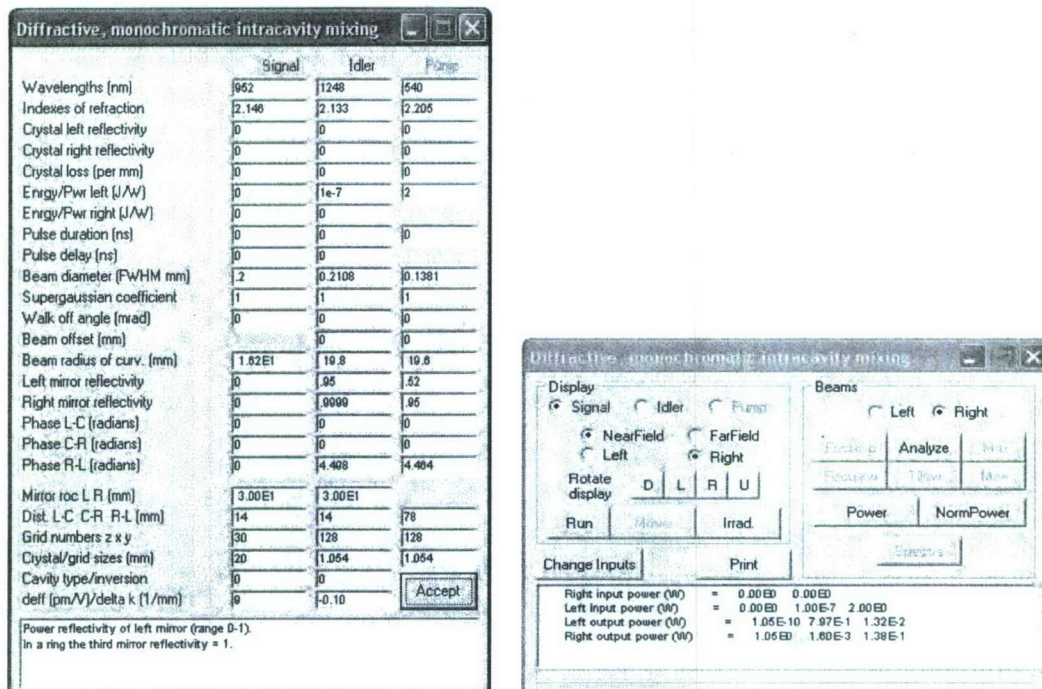 Diffractive, monochromatic intracavity mixing
Signal Idler Pump
Wavelengths (nm) 952 1248 540
Indexes of refraction 2.146 2.133 2.205
Crystal left reflectivity 0 0 0
Crystal right reflectivity 0 0 0
Crystal loss (per mm) 0 0 0
Enrgy/Pwr left (J/W) 0 1e-7 2
Enrgy/Pwr right (J/W) 0 0
Pulse duration (ns) 0 0 0
Pulse delay (ns) 0 0
Beam diameter (FWHM mm) .2 0.2108 0.1381
Supergaussian coefficient 1 1 1
Walk off angle (mrad) 0 0 0
Beam offset (mm) 0 0
Beam radius of curv. (mm) 1.62E1 19.8 19.6
Left mirror reflectivity 0 .95 .52
Right mirror reflectivity 0 .9999 .95
Phase L-C (radians) 0 0 0
Phase C-R (radians) 0 0 0
Phase R-L (radians) 0 4.408 4.464
Mirror roc L R (mm) 3.00E1 3.00E1
Dist. L-C C-R R-L (mm) 14 14 78
Grid numbers z x y 30 128 128
Crystal/grid sizes (mm) 20 1.054 1.054
Cavity type/inversion 0 0
deff (pm/V)/delta k (1/mm) 9 -0.10
Accept
Power reflectivity of left mirror (range 0-1).
In a ring the third mirror reflectivity = 1.
Diffractive, monochromatic intracavity mixing
Display
Signal Idler Pump
NearField FarField
Left Right
Rotate display D L R U
Run Movie Irrad.
Beams
Left Right
Analyze
Power NormPower
Spectra
Change Inputs Print
Right input power (W) = 0.00E0 0.00E0
Left Input power (W) = 0.00E0 1.00E-7 2.00E0
Left output power (W) = 1.05E-10 7.97E-1 1.32E-2
Right output power (W) = 1.05E0 1.60E-3 1.38E-1